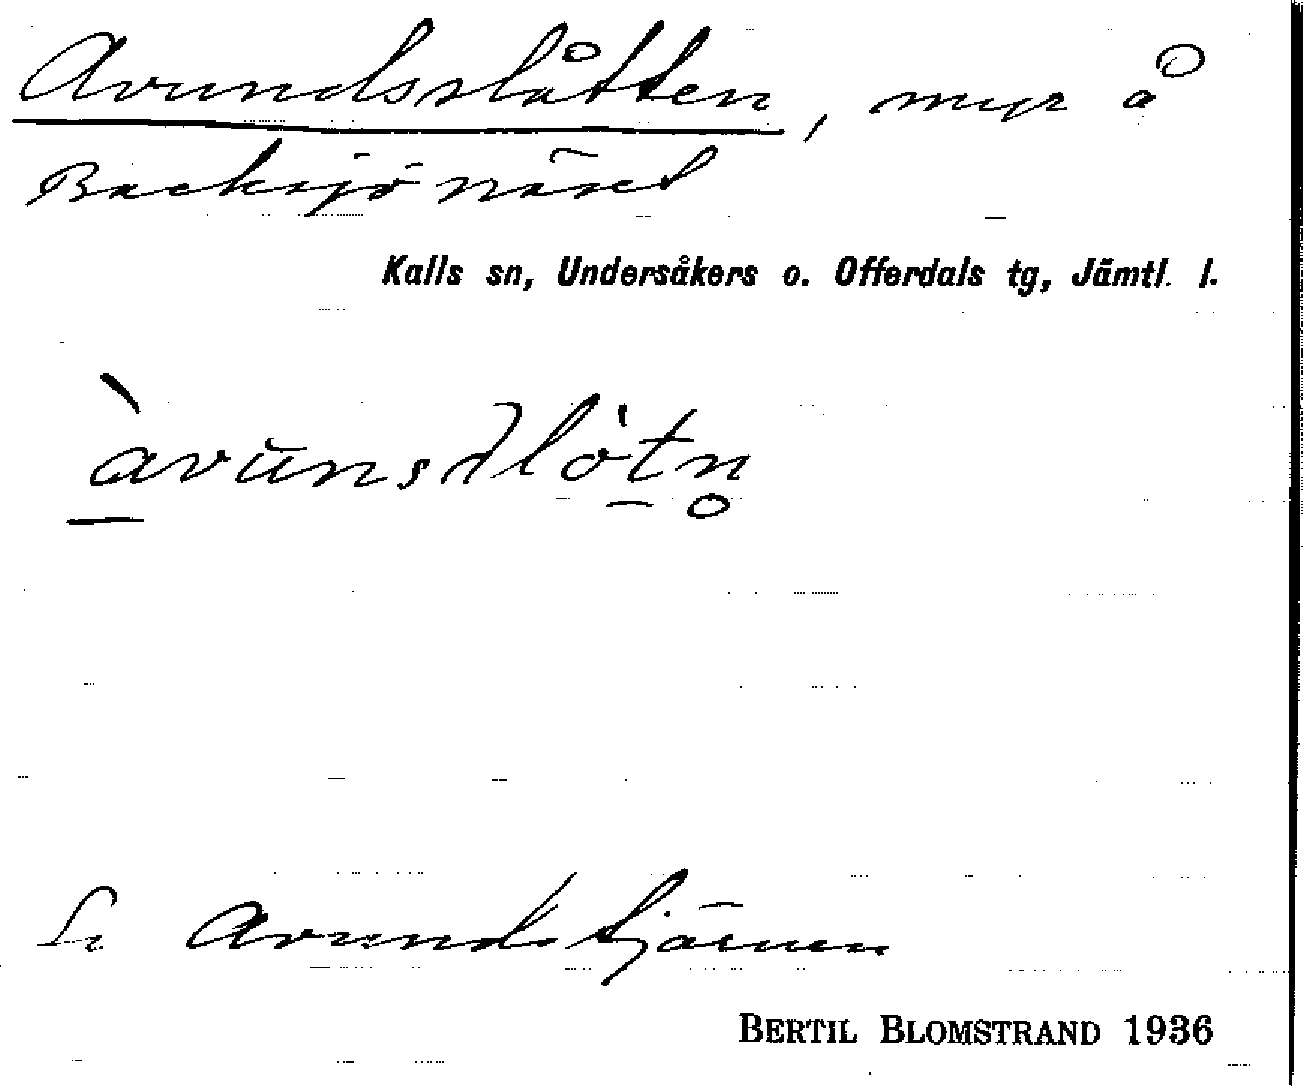 Avundsslåtten, myr å
Backsjönäset
Kalls sn, Undersåkers o. Offerdals tg, Jämtl. l.
àvŭnsʃlòt̠n̥
Se Avundstjärnen
BERTIL BLOMSTRAND 1936